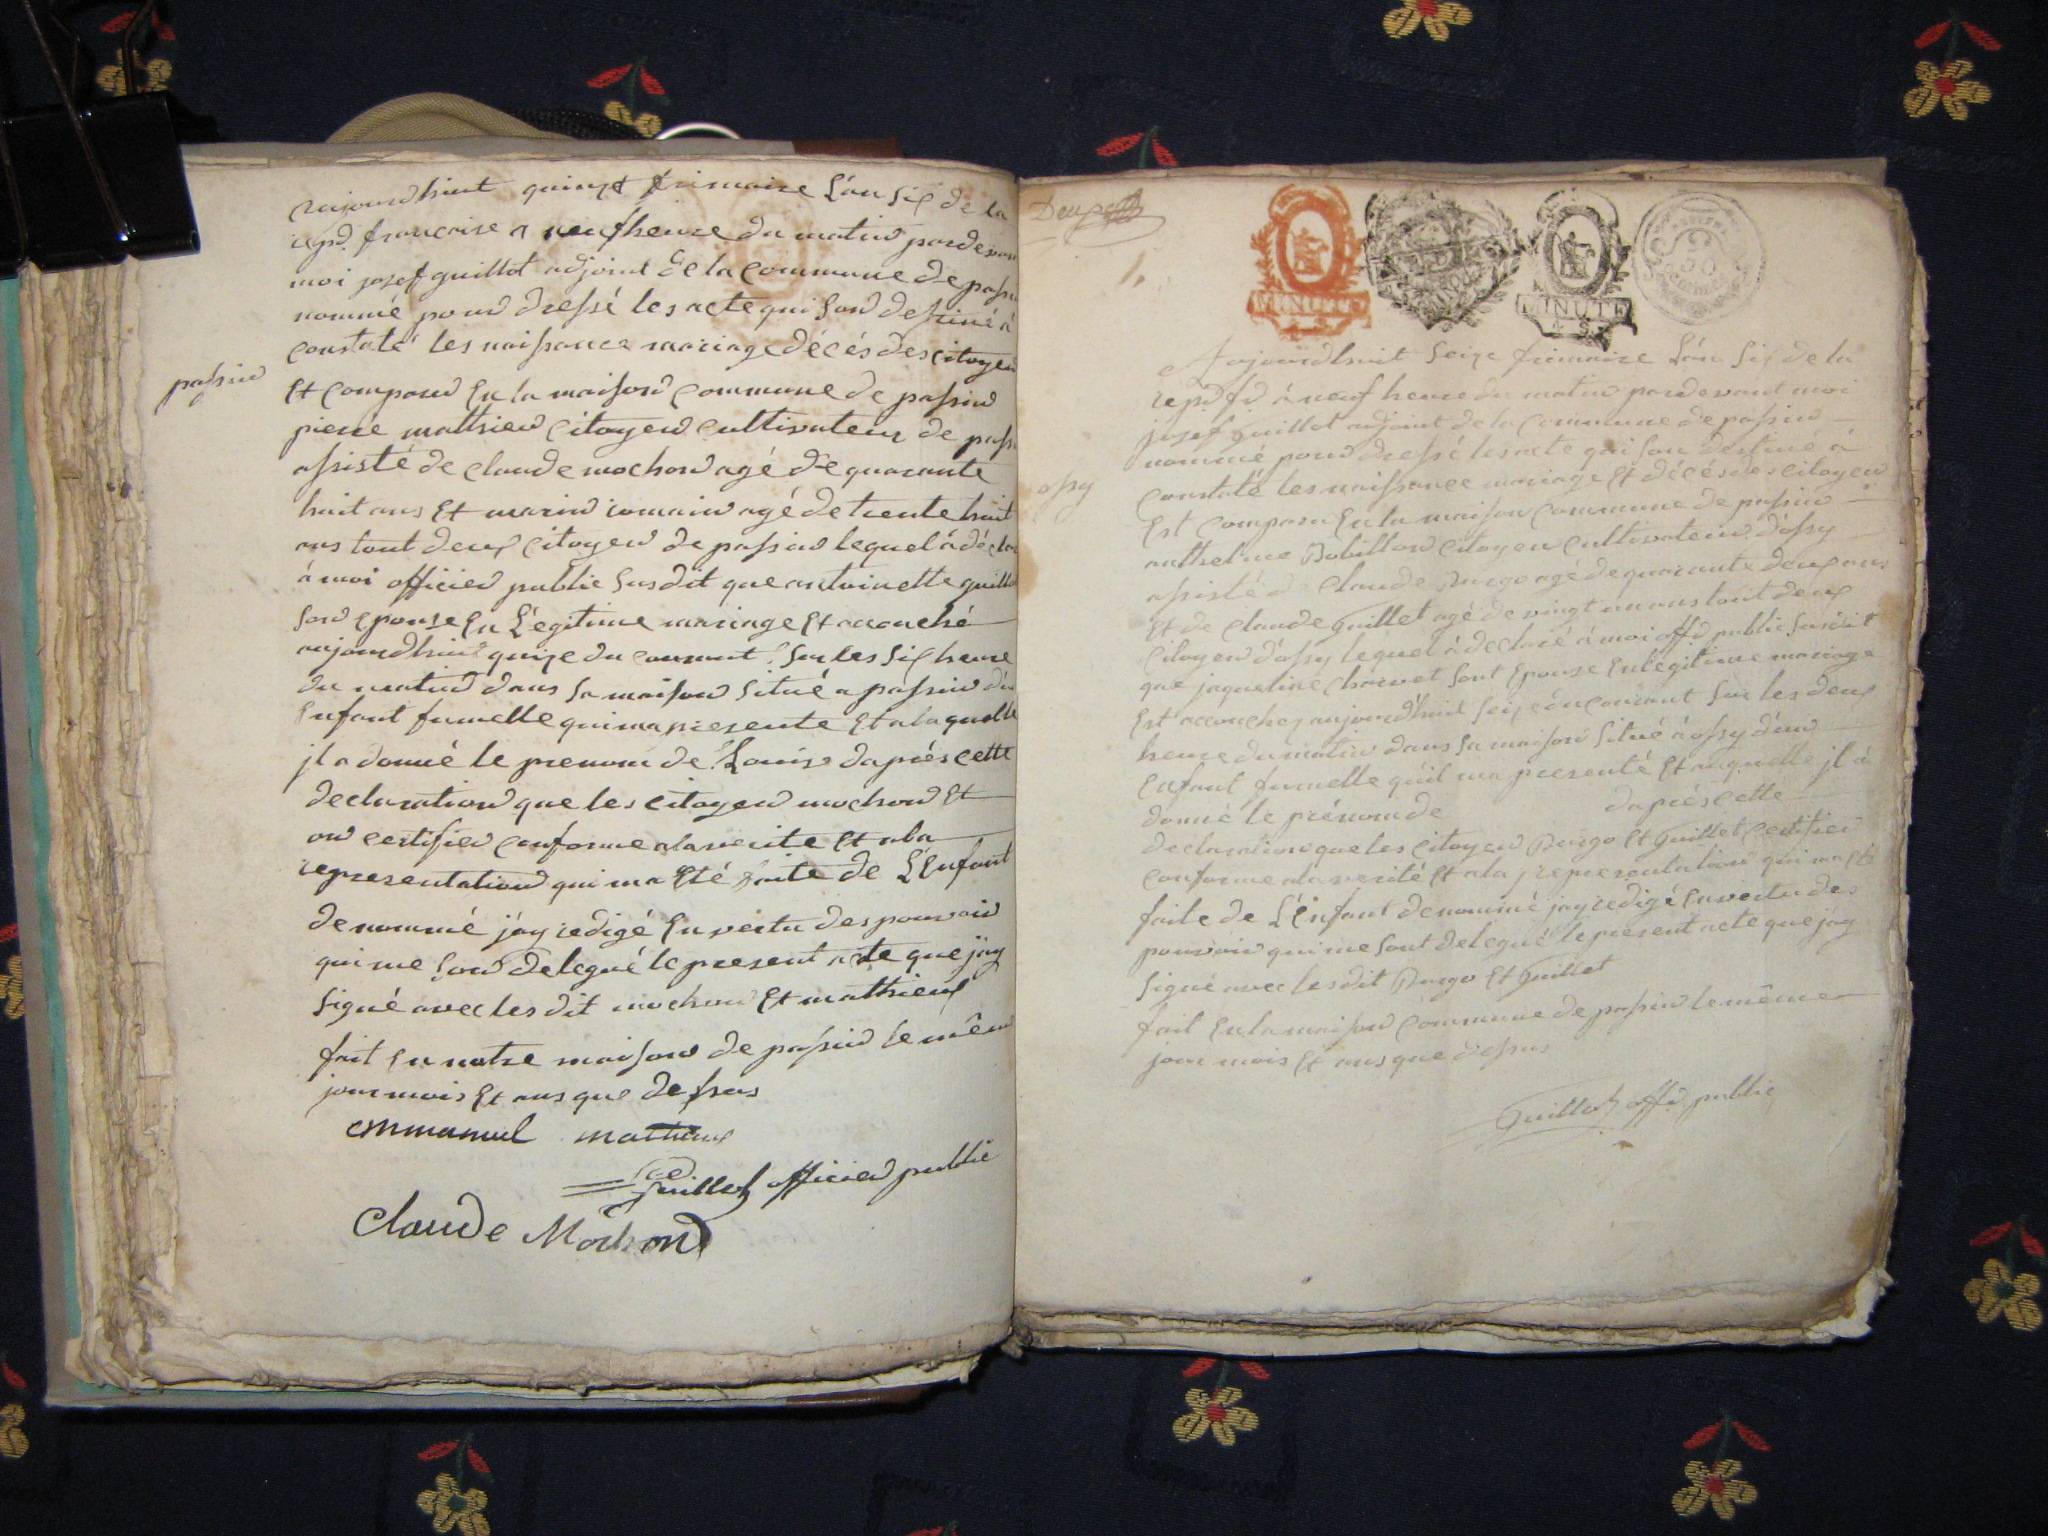 aujourdhuit quinze frimaire L'an Six de la
repd. francaise a neuf heure du matin pardevan
moi josef guillot adjoint de la commune de passi
nommé pour dressé les acte qui son destiné à
constaté les naissance mariage décés des citoyen
passin
Et comparu En la maison commune de passin
pierre mathieu citoyen cultivateur de pass
assisté de claude mochon agé de quarante
huit ans Et marin romain agé de trente huit
ans tout deux citoyen de passin lequel à décla
à moi officier public susdit que antoinette guillo
son epouse En Légitime mariage Et accouché
aujourdhuit quize du courant sur les six heure
du matin dans sa maison situé a passin dun
Enfant fumelle qui ma presente Et a laquelle
jl a donné le prenom de Louise daprés cette
declaration que les citoyen mochon Et
on certifier conforme a la verite Et a la
representation qui ma Eté faite de L'Enfant
denommé j'ay redigé En vertu des pouvoir
qui me son delegué le present acte que jay
signé avec les dit mochon Et mathieux
fait En notre maison de passin le mêm
jour mois Et ans que dessus
emmanuel mathieux
Guillot officier public
Claude Mochond
MINUTE
MINUTE
50
Aujourdhuit Seize frimaire L'an Six de la
repd fd à neuf heure du matin pardevant moi
josef Guillot adjoint de la commune de passin
nommé pour dressé les acte qui son destiné à
constaté les naissance mariage Et décés des citoyen
ossy
Est comparu En la maison commune de passin
anthelme Bobillon citoyen cultivateur d'ossy
assisté de claude Burgo agé de quarante deux ans
Et de claude Guillet agé de vingt un ans tout deux
citoyen d'ossy lequel à declaré à moi offd public susdit
que jaqueline charvet sont Epouse En legitime mariage
Est accouchez aujourd'huit Seize du courant sur les deux
heure du matin dans sa maison situé à ossy d'un
Enfant fumelle qu'il ma presenté Et auquelle jl à
donné le prénom de daprés cette
declaration que les citoyen Burgo Et Guillet certifier
conforme a la verité Et a la representation qui ma Eté
faite de L'Enfant denommé jay redigé En vertu des
pouvoir qui me sont delegué le present acte que jay
signé avec les dit Burgo Et Guillet
fait En la maison commune de passin le même
jour mois Et ans que dessus
Guillot offd public